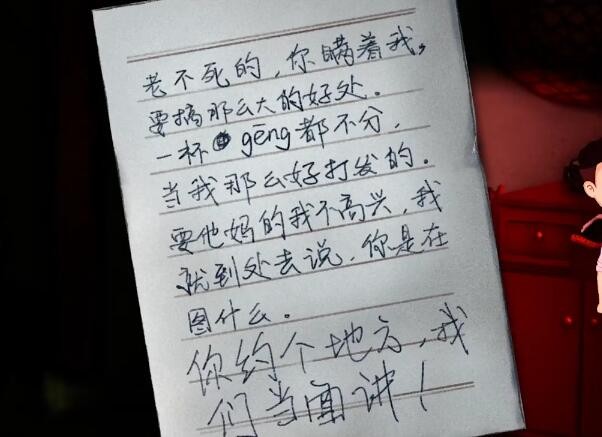 老不死的，你瞒着我，
要搞那么大的好处.
一杯gēng都不分，
当我那么好打发的.
要他妈的我不高兴，我
就到处去说，你是在
图什么。
你约个地方，我
们当面讲！